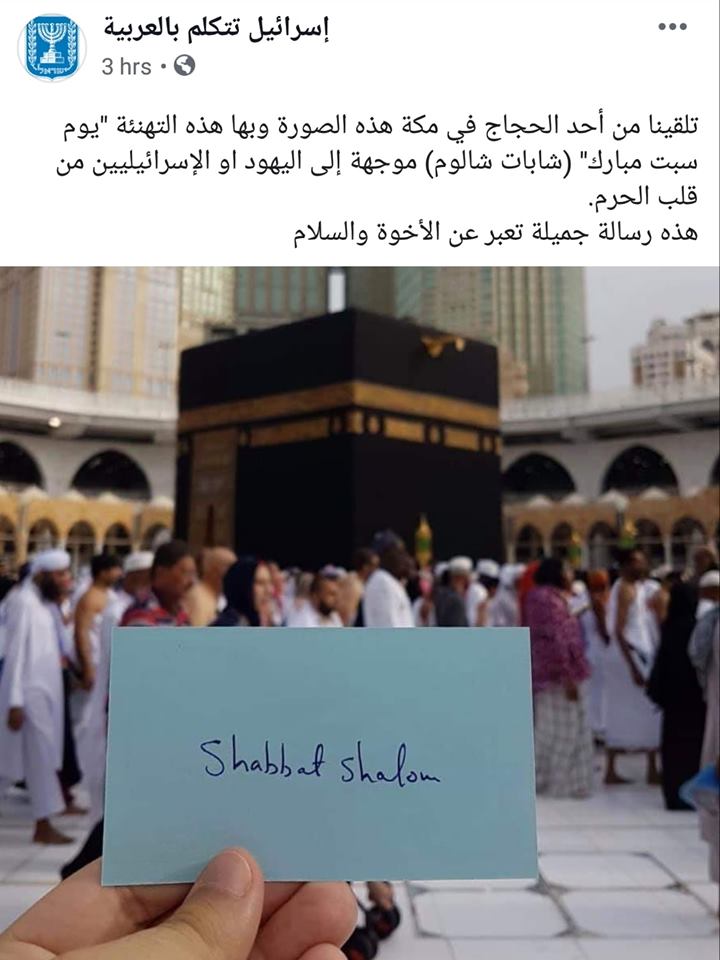 إسرائيل تتكلم بالعربية
3 hrs
تلقينا من أحد الحجاج في مكة هذه الصورة وبها هذه التهنئة "يوم
سبت مبارك" (شابات شالوم) موجهة إلى اليهود او الإسرائيليين من
قلب الحرم.
هذه رسالة جميلة تعبر عن الأخوة والسلام
Shabbat shalom